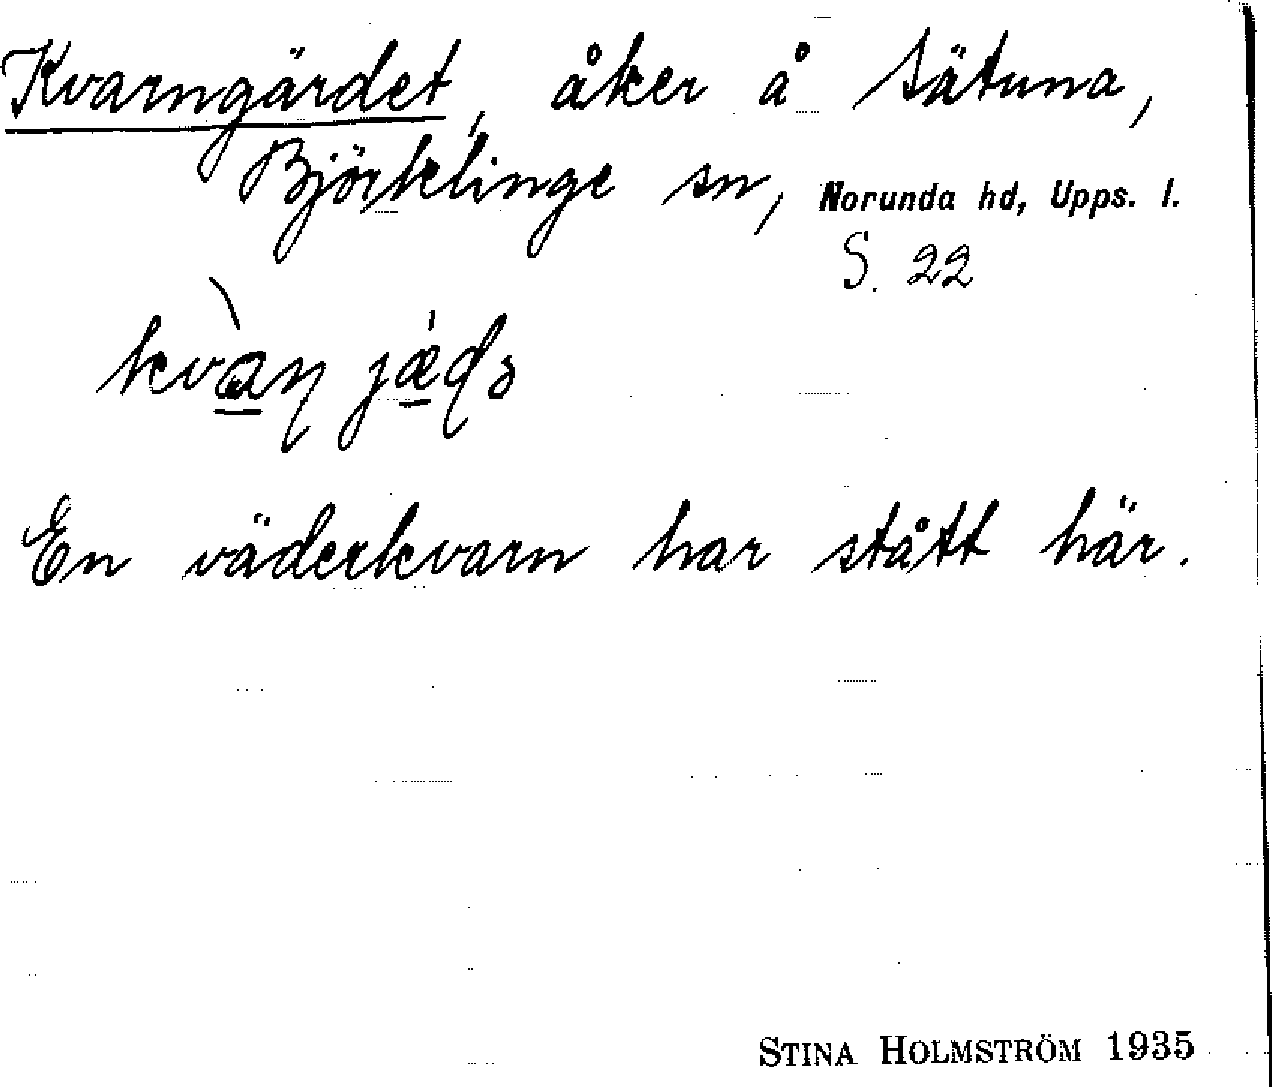 Kvarngärdet, åker å Sätuna,
Björklinge sn, Norunda hd, Upps. l.
S. 22
En väderkvarn har stått här.
STINA HOLMSTRÖM 1935